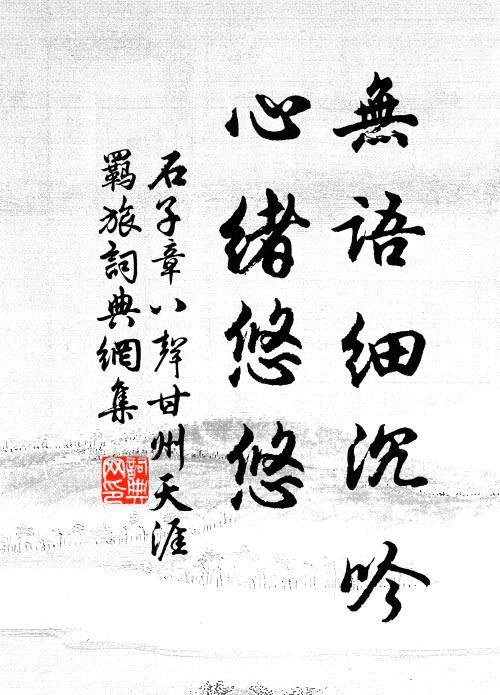 無語細沉吟
心緒悠悠
石子章八聲甘州天涯
羈旅詞典網集
詞典网印